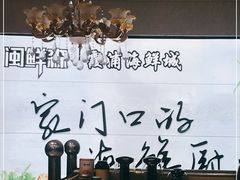 闽鲜 霞浦海鲜城
家门口的
海鲜厨